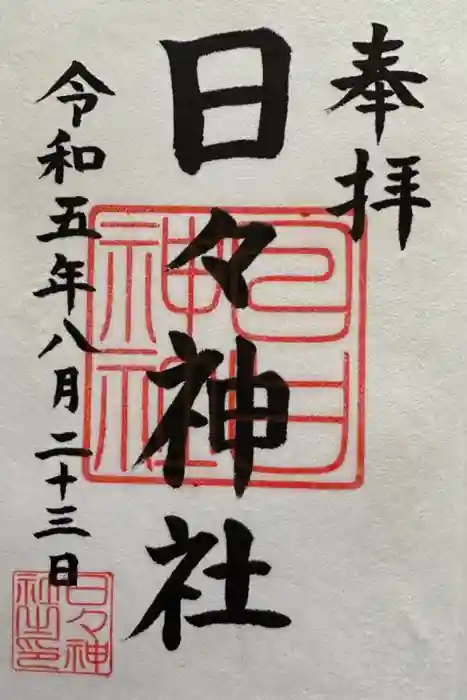 奉拝
日々神社
令和五年八月二十三日
日日神社
日々神社之印